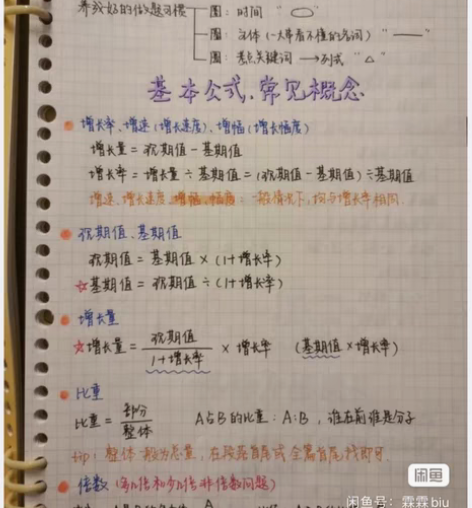 养成好的做题习惯
圈：时间 "○"
圈：主体(一大串看不懂的名词) "——"
圈：考点关键词 →列式 "△"
基本公式、常见概念
增长率、增速(增长速度)、增幅(增长幅度)
增长量=现期值-基期值
增长率=增长量÷基期值=(现期值-基期值)÷基期值
增速、增长速度、增幅、幅度：一般情况下，均与增长率相同.
现期值、基期值
现期值=基期值×(1+增长率)
☆基期值=现期值÷(1+增长率)
增长量
☆增长量=现期值/1+增长率 × 增长率 (基期值×增长率)
比重
比重=部分/整体 A与B的比重：A:B，谁在前谁是分子
tip：整体一般为总量，在段落首尾或全篇首尾找即可.
倍数(多几倍和少几倍非倍数问题)
闲鱼
闲鱼号：霖霖biu